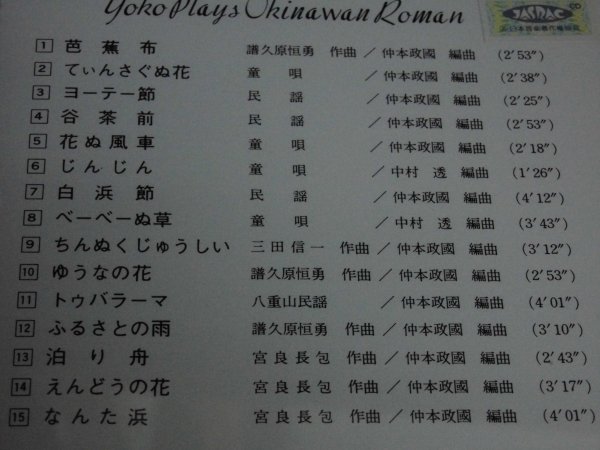 Yoko Plays Okinawan Roman
JASRAC
1 芭蕉布 譜久原恒勇 作曲／仲本政國 編曲 (2′53″)
2 てぃんさぐぬ花 童唄 ／仲本政國 編曲 (2′38″)
3 ヨーテー節 民謡 ／仲本政國 編曲 (2′25″)
4 谷茶前 民謡 ／仲本政國 編曲 (2′53″)
5 花ぬ風車 童唄 ／仲本政國 編曲 (2′18″)
6 じんじん 童唄 ／中村透 編曲 (1′26″)
7 白浜節 民謡 ／仲本政國 編曲 (4′12″)
8 べーべーぬ草 童唄 ／中村透 編曲 (3′43″)
9 ちんぬくじゅうしい 三田信一 作曲／仲本政國 編曲 (3′12″)
10 ゆうなの花 譜久原恒勇 作曲／仲本政國 編曲 (2′53″)
11 トゥバラーマ 八重山民謡 ／仲本政國 編曲 (4′01″)
12 ふるさとの雨 譜久原恒勇 作曲／仲本政國 編曲 (3′10″)
13 泊り舟 宮良長包 作曲／仲本政國 編曲 (2′43″)
14 えんどうの花 宮良長包 作曲／仲本政國 編曲 (3′17″)
15 なんた浜 宮良長包 作曲／仲本政國 編曲 (4′01″)